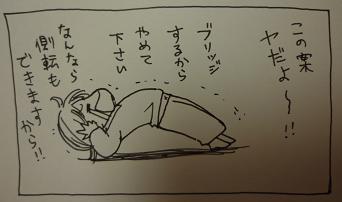 この案
ヤだよ〜!!
ブリッジ
するから
やめて
下さい
なんなら
側転も
できます
から!!